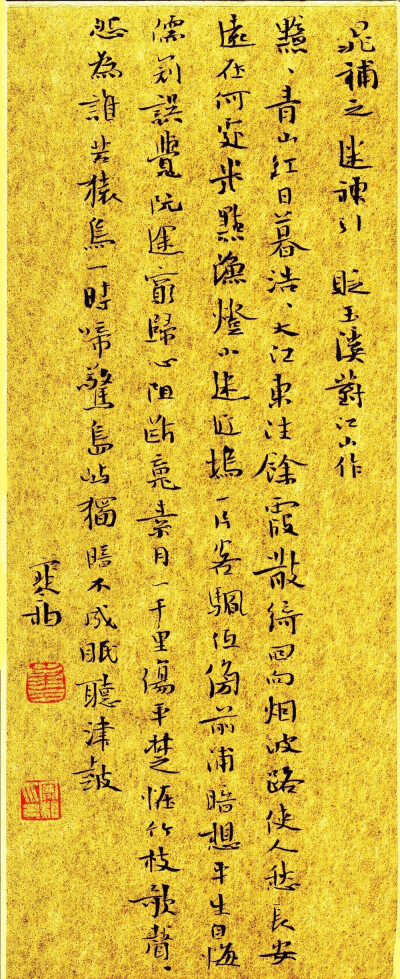 晁補之 迷神引 貶玉溪對江山作
黯、青山红日暮浩、大江東注餘霞散綺回向烟波路使人愁長安
遠在何處幾點漁燈小迷近塢一片客颿低傍前浦暗想平生自悔
儒冠誤覺阮途窮歸心阻断魂素月一千里傷平楚怪竹枝歌聲、
怨為誰苦猿鳥一時啼驚島嶼獨暗不成眠聽津鼓